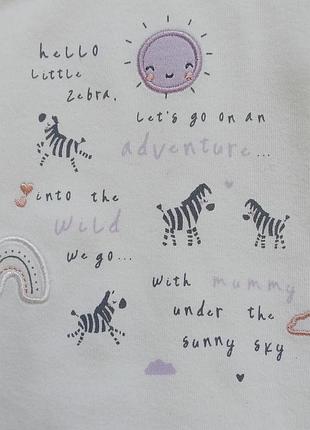 hello
little
zebra,
let's go on an
adventure...
into the
wild
we go...
with mummy
under the
sunny sky